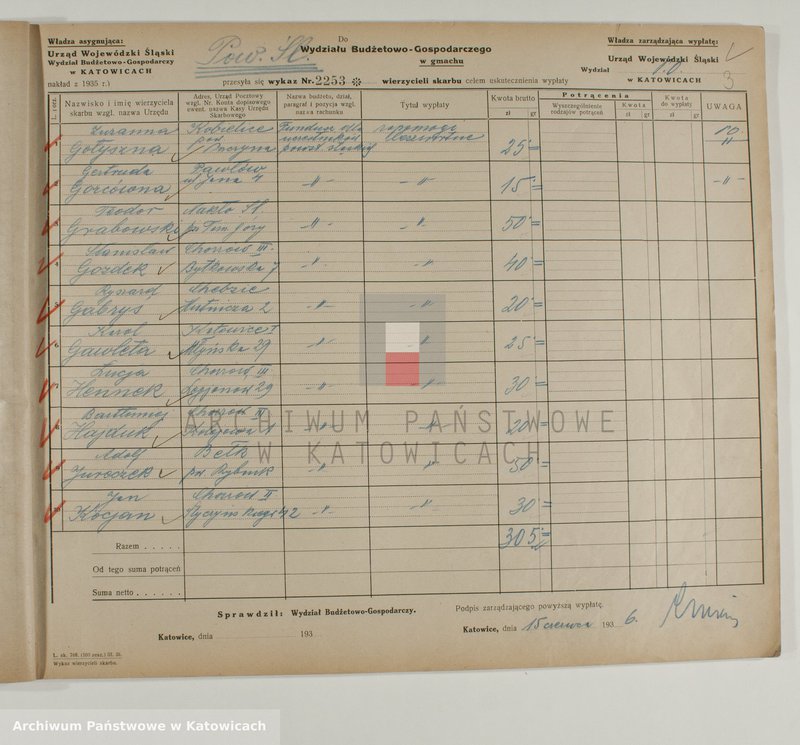 Władza asygnująca:
Urząd Wojewódzki Śląski
Wydział Budżetowo-Gospodarczy
w KATOWICACH
nakład z 1935 r.)
Pow. Śl.
Do
Wydziału Budżetowo-Gospodarczego
w gmachu
przesyła się wykaz Nr. 2253 wierzycieli skarbu celem uskutecznienia wypłaty
Władza zarządzająca wypłatę:
Urząd Wojewódzki Śląski
Wydział
w KATOWICACH
3
L. porz.
Nazwisko i imię wierzyciela skarbu wzgl. nazwa Urzędu
Adres, Urząd Pocztowy wzgl. Nr. Konta dopisowego ewent. nazwa Kasy Urzędu Skarbowego
Nazwa budżetu, dział, paragraf i pozycja wzgl. nazwa rachunku
Tytuł wypłaty
Kwota brutto
zł gr
Potrącenia
Wyszczególnienie rodzajów potrąceń
Kwota
zł gr
Kwota do wypłaty
zł gr
UWAGA
Zuzanna Kobielice Fundusz dla zapomogi 10
Gołyszna pod Pszczyna powst. śląskich 25 =
Gertruda Pawłów
Gorcoiona ul. Jana 4 -"- -"- 15 = -"-
Teodor Nakło Śl.
Grabowski -"- -"- 50 =
Stanisław Chorzów III
Gozdek Bytkowska 7 -"- -"- 40 =
Ryszard Chebzie
Gabryś Hutnicza 2 -"- -"- 20 =
Karol Katowice I
Gawleta Młyńska 29 -"- -"- 25 =
Łucja Chorzów III
Hennek 29 -"- -"- 30 =
Bartłomiej Chorzów
Hajduk Kolejowa -"- -"- 20 =
Adolf Bełk
Jureczek pow. Rybnik -"- -"- 50 =
Jan Chorzów II
Kocjan -"- -"- 30 =
Razem 305 =
Od tego suma potrąceń
Suma netto
Sprawdził: Wydział Budżetowo-Gospodarczy.
Podpis zarządzającego powyższą wypłatę.
Katowice, dnia 193
Katowice, dnia 15 czerwca 1936.
Wykaz wierzycieli skarbu.
ARCHIWUM PAŃSTWOWE
W KATOWICACH
Archiwum Państwowe w Katowicach